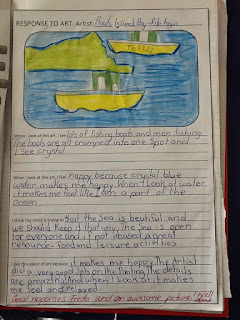 RESPONSE TO ART. Artist: Boats Island Bay-Rob
When I look at this art, I see lots of fishing boats and men fishing.
The boats are all cramped into one spot and
I see crystal
When I look at this art, I feel happy because crystal blue
water makes me happy. When I look at water
it makes me feel like I am a part of the
ocean
I think the artist is trying to say that the sea is beutiful and
we should keep it that way. The sea is open
for everyone and is not abused a great
resource - food and leisure activities
I like this piece of art because it makes me happy. The Artist
did a very good job on the Painting. The details
are amazing and when I look at it makes
me feel and relaxed.
Great responses Freda and an awesome picture! Well done